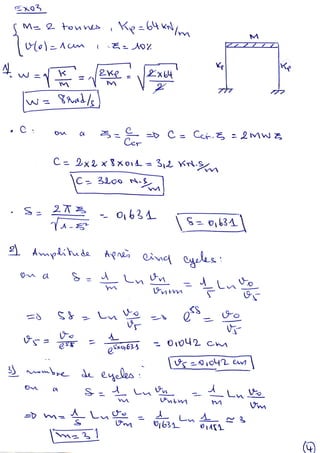 Exo3
M = 2 tonnes, Kp = 64 kN/m
V(o) = 1 cm, ξ = 10%
M
Kp
Kp
1) W = √(K/M) = √(2Kp/M) = √(2×64/2)
W = 8 rad/s
• C : on a ξ = C/Ccr => C = Ccr.ξ = 2MWξ
C = 2×2×8×0,1 = 3,2 KN.S/m
C = 3200 N.S/m
• δ = 2πξ/√(1-ξ²) = 0,631
δ = 0,631
2) Amplitude Après cinq cycles :
on a δ = 1/m Ln Vn/Vn+m = 1/5 Ln Vo/V5
=> 5δ = Ln Vo/V5 => e^5δ = Vo/V5
V5 = Vo/e^5δ = 1/e^5×0,631 = 0,042 cm
V5 = 0,042 cm
3) nombre de cycles :
on a δ = 1/m Ln Vn/Vn+m = 1/m Ln Vo/Vm
=> m = 1/δ Ln Vo/Vm = 1/0,631 Ln 1/0,151 ≈ 3
m = 3
4